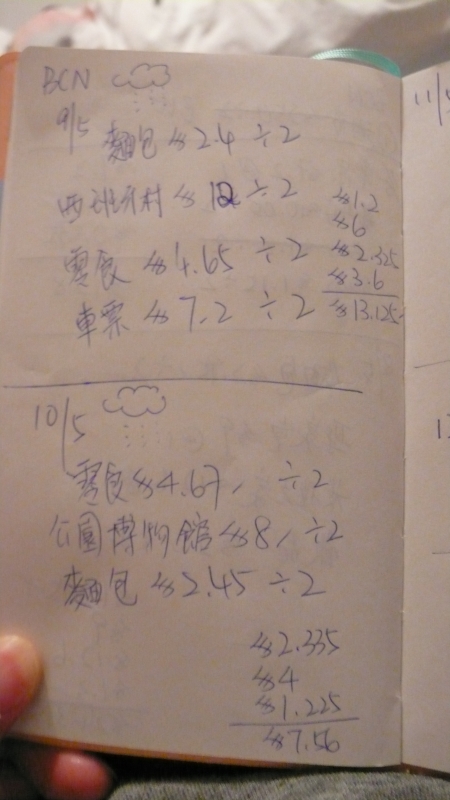 BCN
9/5
麵包 $2.4 ÷2
西班牙村 $12 ÷2
零食 $4.65 ÷2
車票 $7.2 ÷2
$1.2
$6
$2.325
$3.6
$13.125
10/5
零食 $4.67, ÷2
公園博物館 $8, ÷2
麵包 $2.45 ÷2
$2.335
$4
$1.225
$7.56
11/5